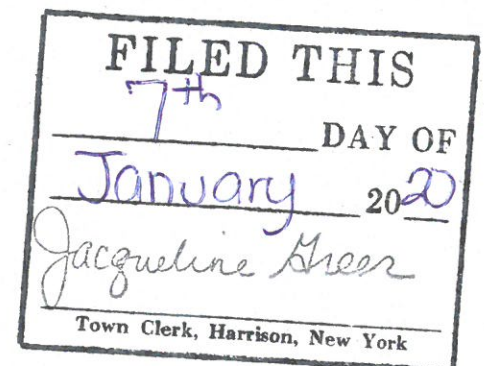 FILED THIS
7th
DAY OF
January 2020
Jacqueline Greer
Town Clerk, Harrison, New York